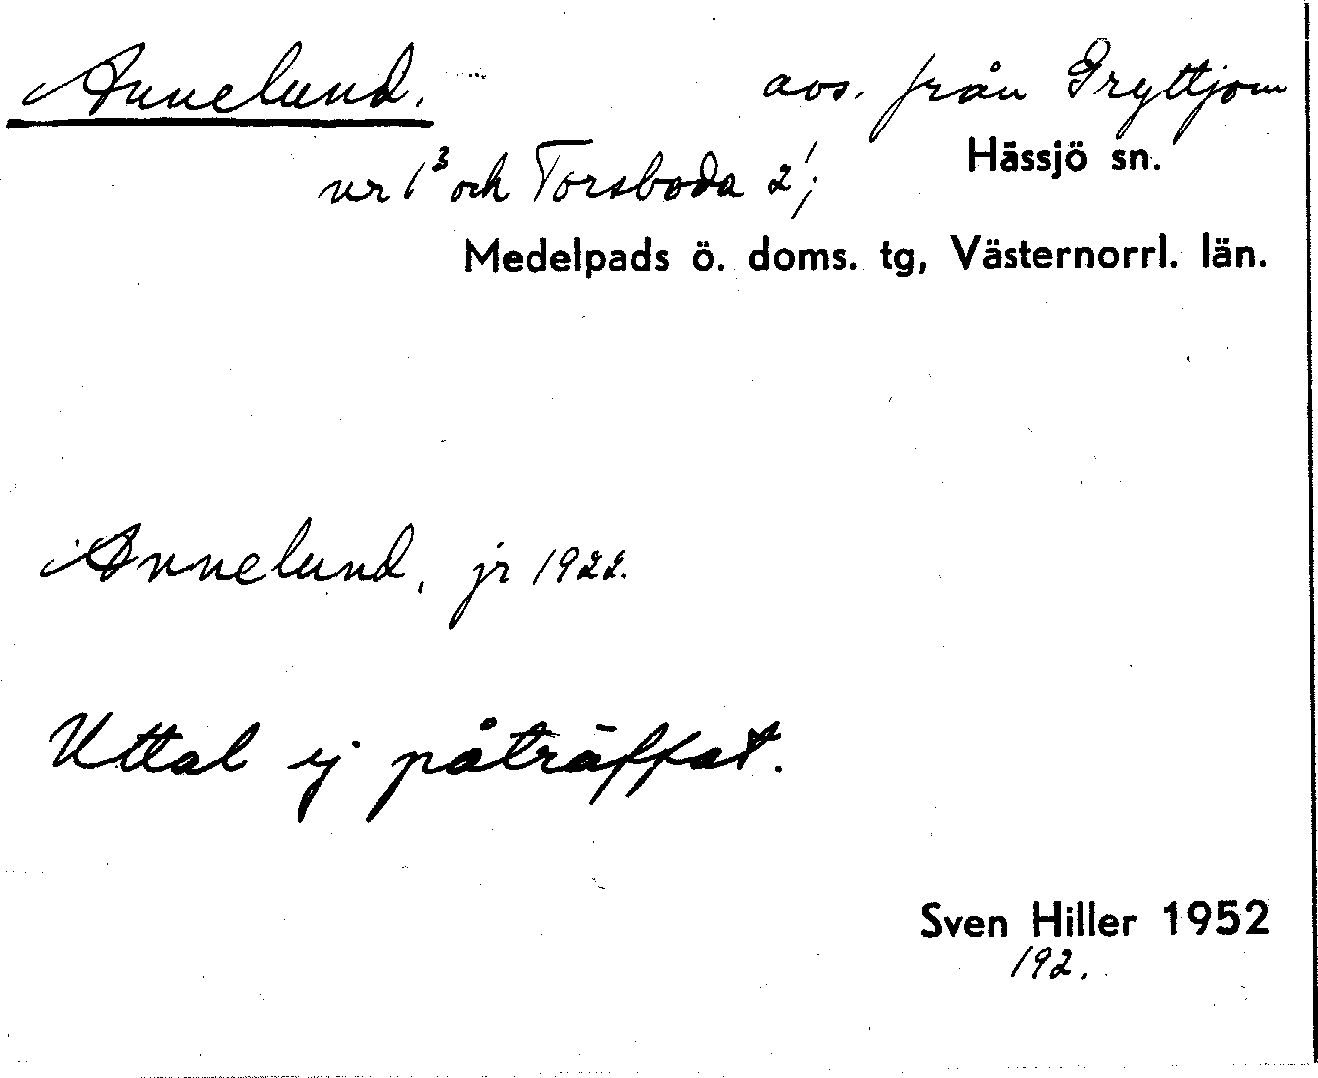 Annelund. avs. från Gryttjom
nr 1³ och Torsboda 2¹; Hässjö sn.
Medelpads ö. doms. tg, Västernorrl. län.
Annelund, jr 1922.
Uttal ej påträffat.
Sven Hiller 1952
192.